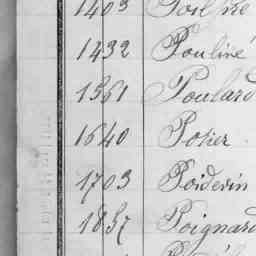 1403
1432 Pouliné
1561 Poulard
1640 Potier
1703 Poidevin
1857 Poignard